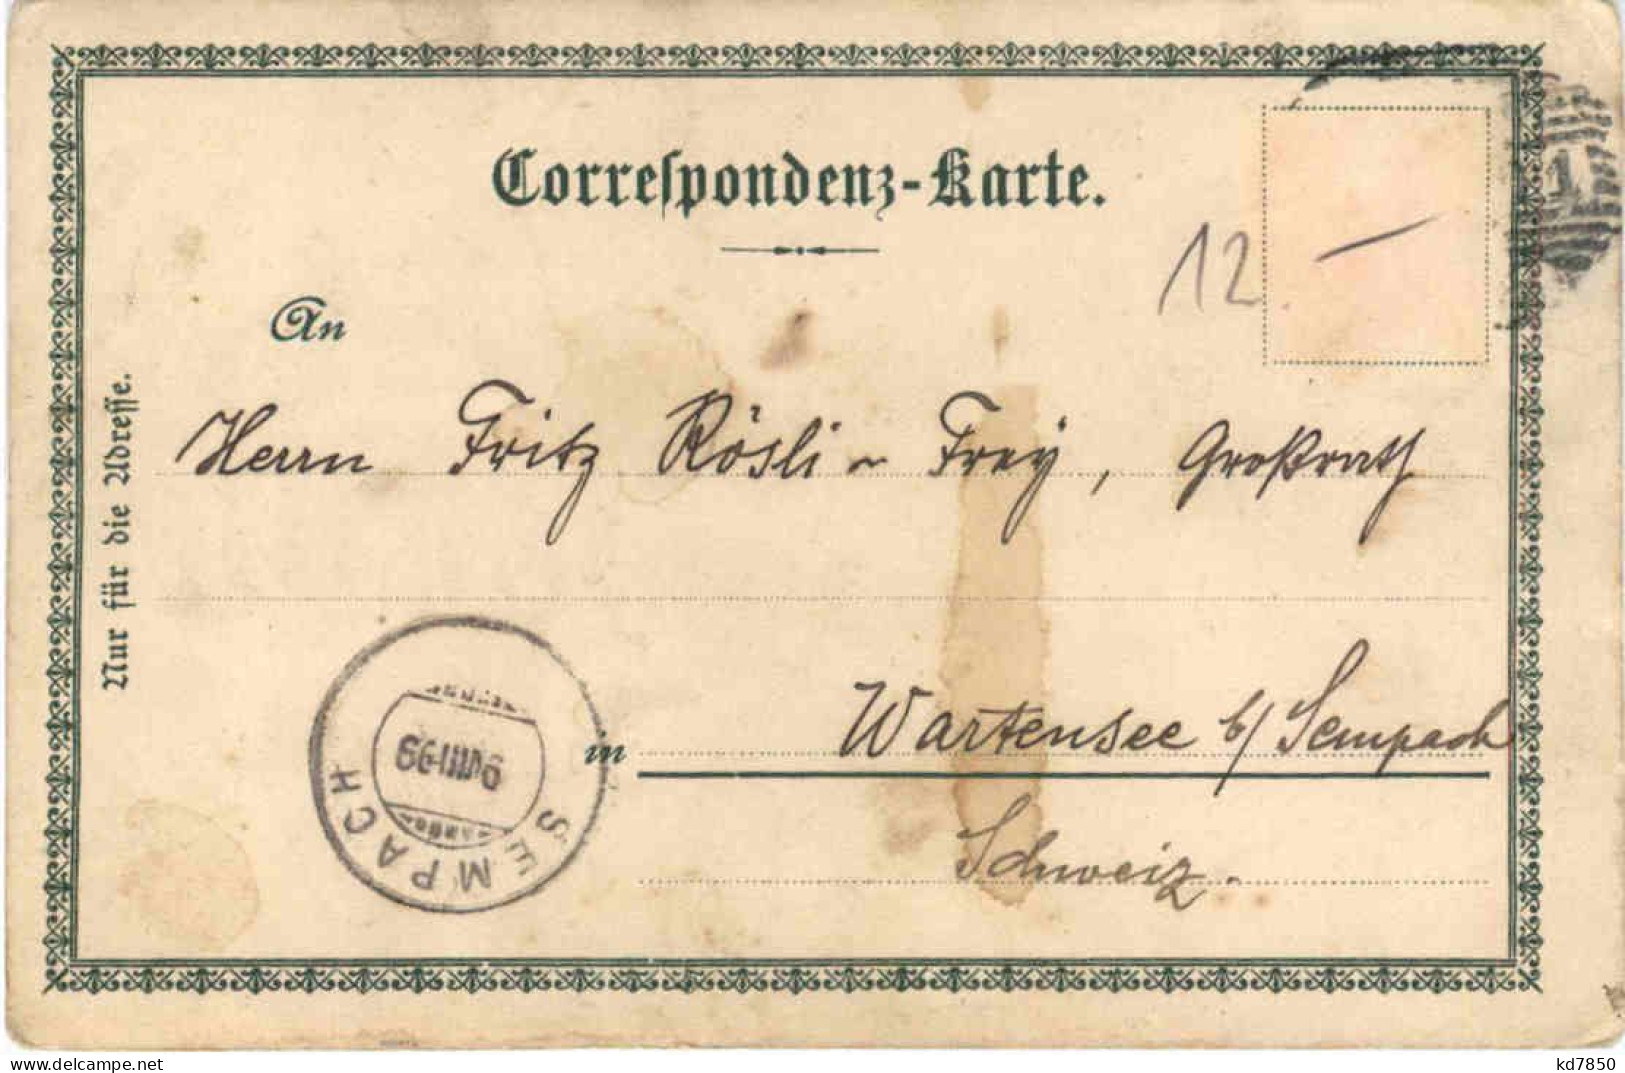 Correspondenz-Karte.
12.
1
An
Nur für die Adresse.
Herrn Fritz Rösli - Frey, Großrath
in Wartensee b/ Sempach
Schweiz.
SEMPACH
9.VIII-99
www.delcampe.net
kd7850